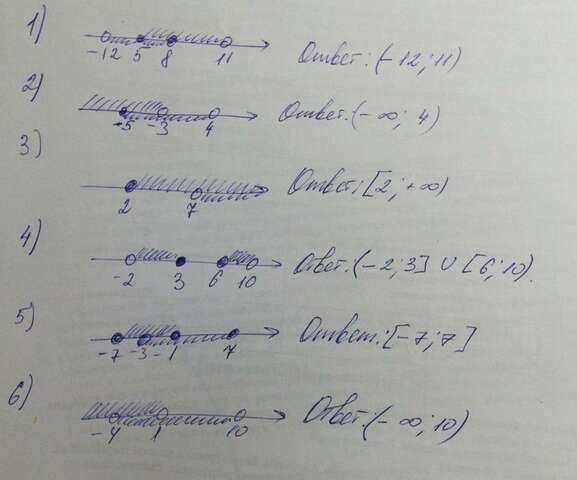 1)
-12 5 8 11 Ответ: (-12; 11)
2)
-5 -3 4 Ответ: (-∞; 4)
3)
2 7 Ответ: [2; +∞)
4)
-2 3 6 10 Ответ: (-2; 3] ∪ [6; 10).
5)
-7 -3 -1 7 Ответ: [-7; 7]
6)
-4 1 10 Ответ: (-∞; 10)